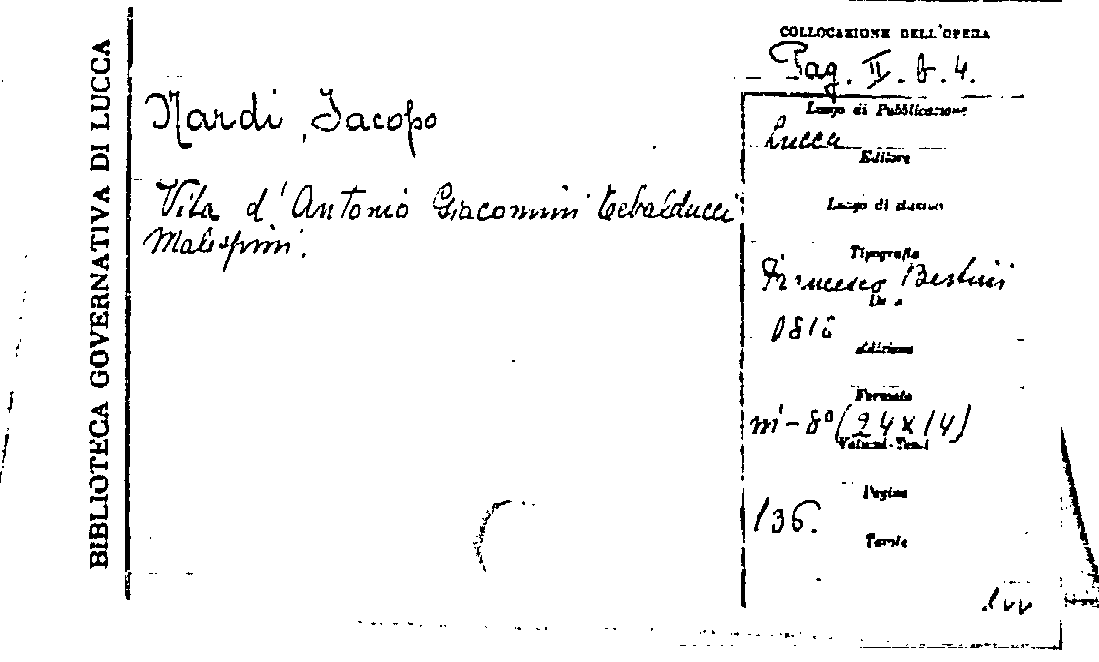 BIBLIOTECA GOVERNATIVA DI LUCCA
Nardi, Jacopo
Vita d'Antonio Giacomini Tebalducci
Malespini.
COLLOCAZIONE DELL'OPERA
Pag. II. b. 4.
Luogo di Pubblicazione
Lucca
Editore
Luogo di stampa
Tipografia
Francesco Bertini
Data
Edizione
Formato
in-8º (24x14)
Volumi-Tomi
Pagine
136.
Tavole